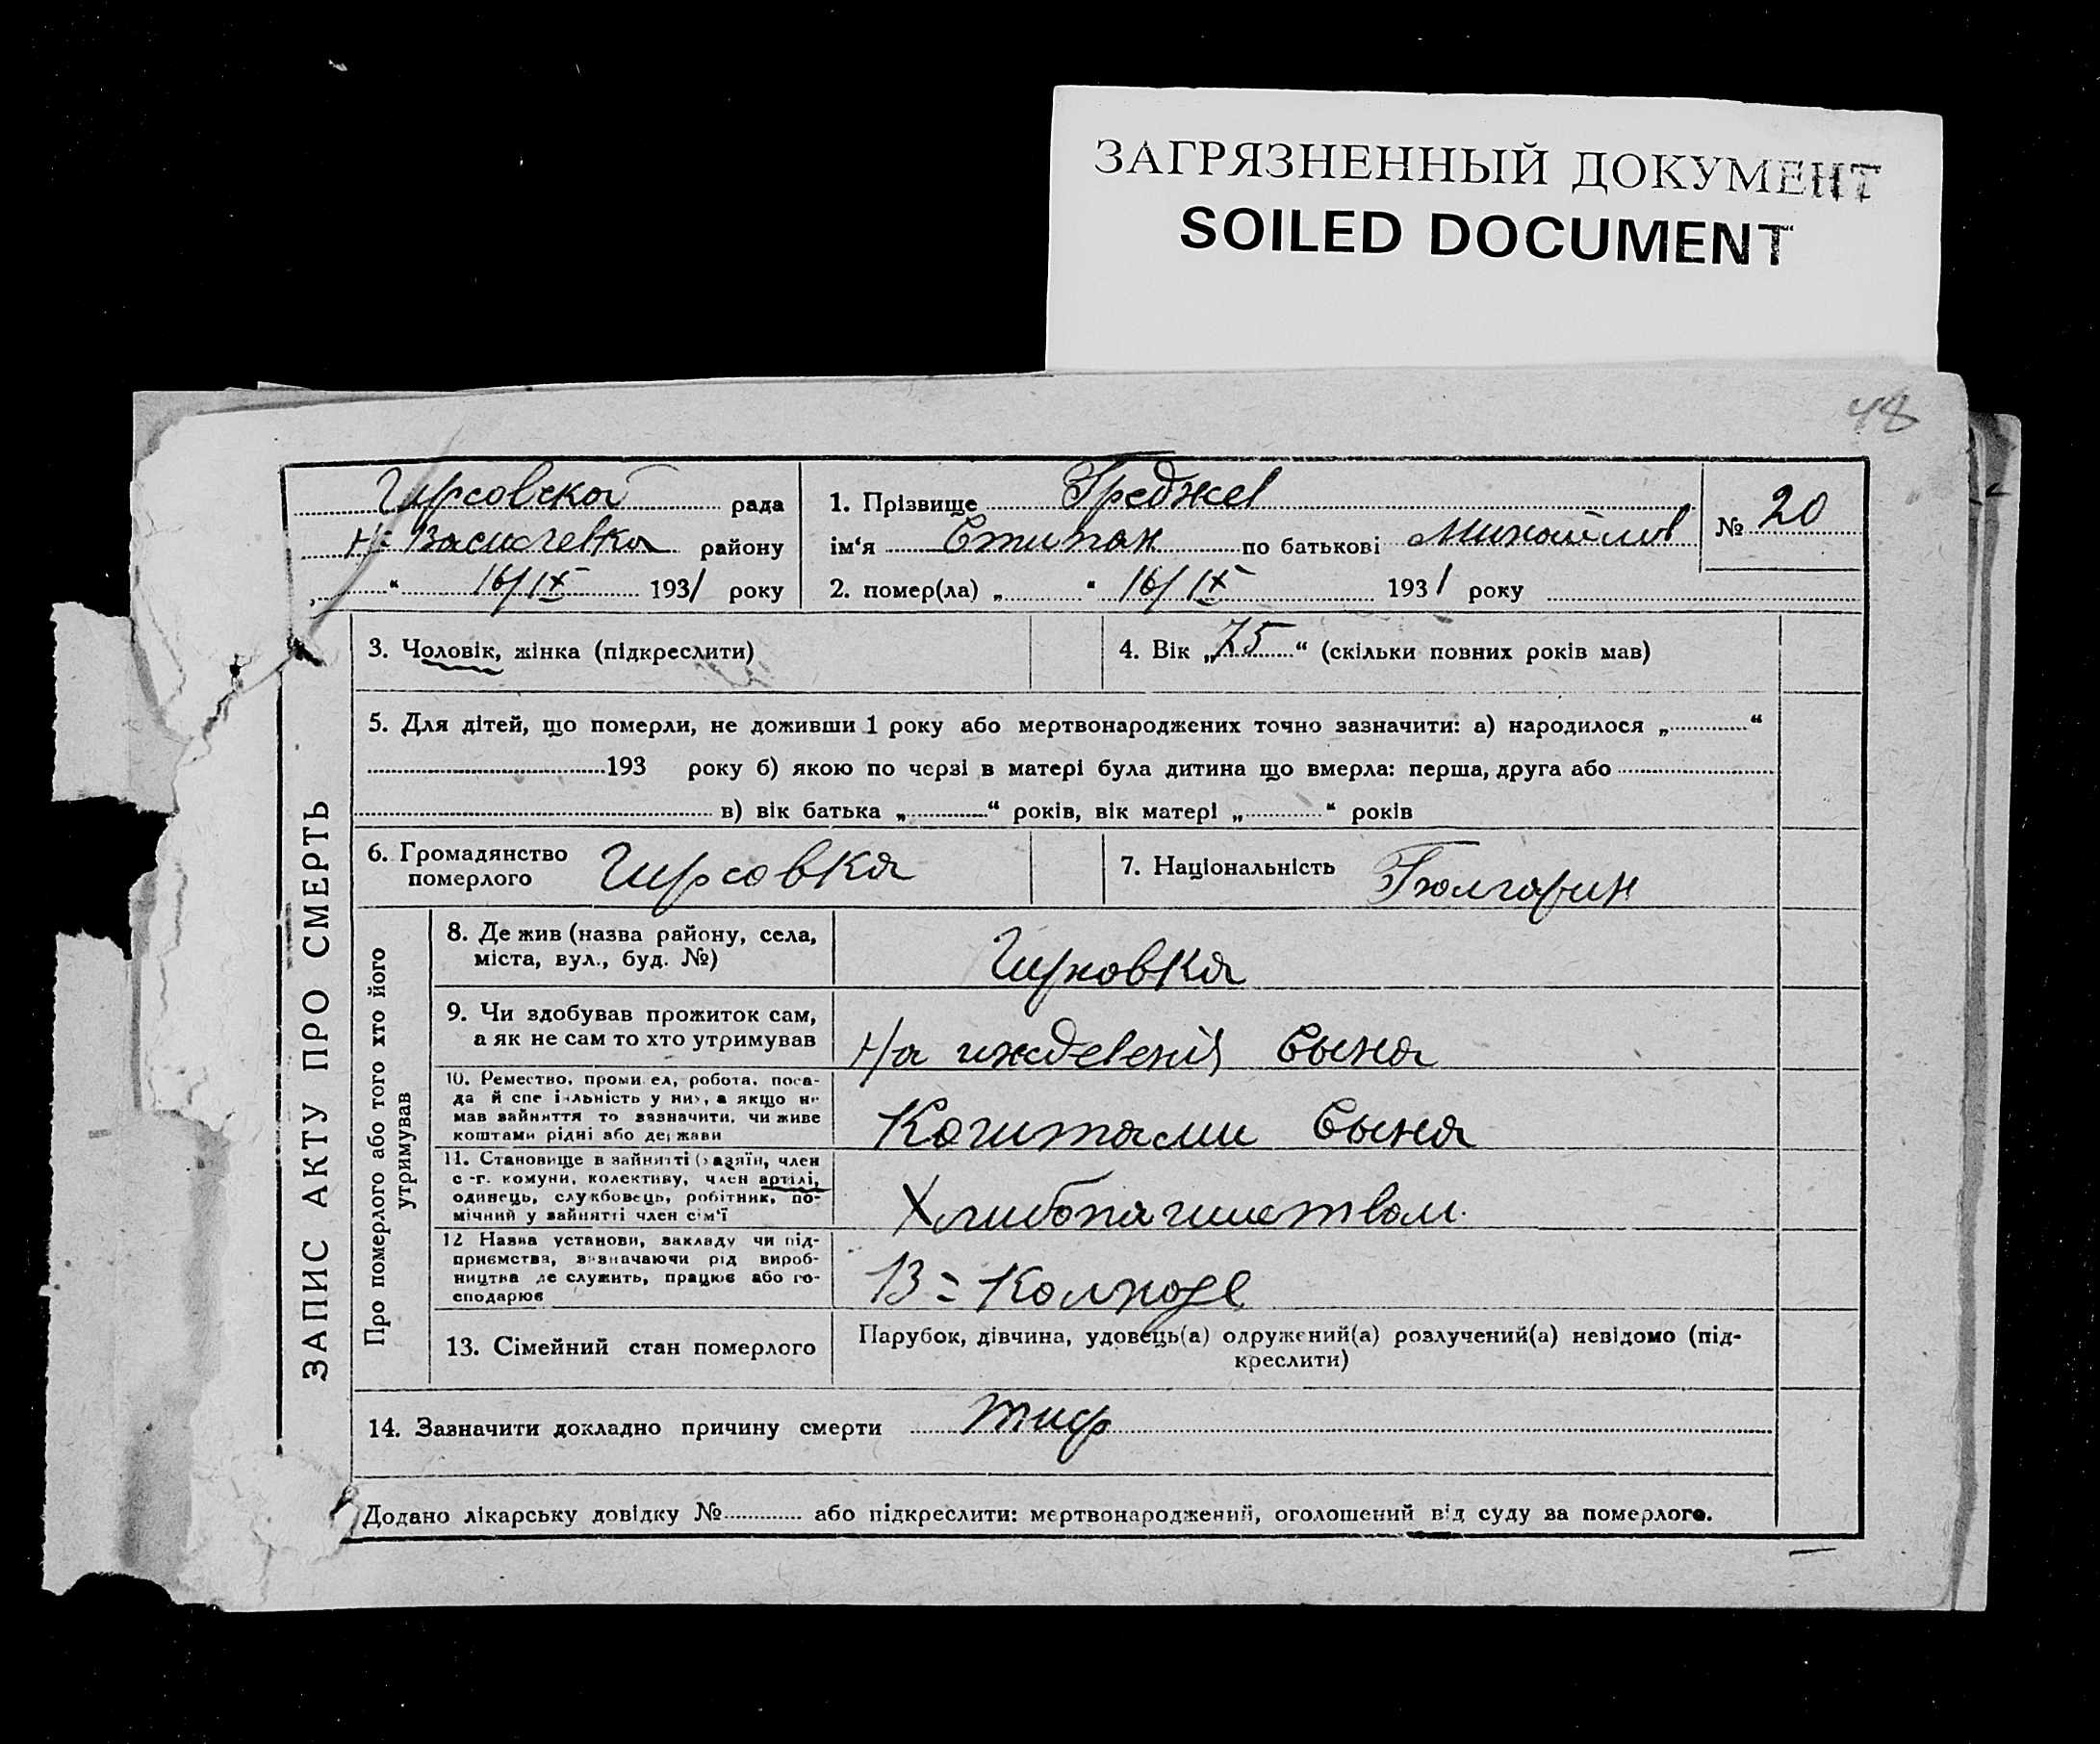 ЗАГРЯЗНЕННЫЙ ДОКУМЕНТ
SOILED DOCUMENT
48
Гирсовской рада
Н-Василевка району
„ “ 16/IX 1931 року
1. Прізвище Греджев
ім‘я Стипан по батькові Михайлов
2. помер(ла) „ “ 16/IX 1931 року
№ 20
ЗАПИС АКТУ ПРО СМЕРТЬ
3. Чоловік, жінка (підкреслити)
4. Вік „75“ (скільки повних років мав)
5. Для дітей, що померли, не доживши 1 року або мертвонароджених точно зазначити: а) народилося „ “
193 року б) якою по черзі в матері була дитина що вмерла: перша, друга або
в) вік батька „ “ років, вік матері „ “ років
6. Громадянство
померлого Гирсовка
7. Національність Болгарин
Про померлого або того хто його
утримував
8. Де жив (назва району, села,
міста, вул., буд. №)
Гирсовка
9. Чи здобував прожиток сам,
а як не сам то хто утримував
На иждевенія Сына
10. Ремество, промисел, робота, поса-
да й спеціяльність у них, а якщо не
мав зайняття то зазначити, чи живе
коштами рідні або держави
Коштами Сына
11. Становище в зайнятті (хазяїн, член
с.-г. комуни, колективу, член артілі,
одинець, службовець, робітник, по-
мічний у зайнятті член сім‘ї
Хлиборашиством
12 Назва установи, закладу чи під-
приємства, зазначаючи рід вироб-
ництва де служить, працює або го-
сподарює
В = Колхозе
13. Сімейний стан померлого
Парубок, дівчина, удовець(а) одружений(а) розлучений(а) невідомо (під-
креслити)
14. Зазначити докладно причину смерти тиф
Додано лікарську довідку № або підкреслити: мертвонароджений, оголошений від суду за померлого.